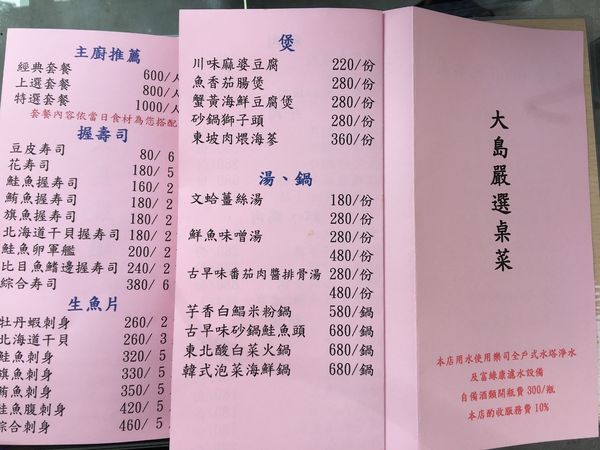 主廚推薦
經典套餐 600/人
上選套餐 800/人
特選套餐 1000/人
套餐內容依當日食材為您搭配
握壽司
豆皮壽司 80/ 6
花壽司 180/ 5
鮭魚握壽司 160/ 2
鮪魚握壽司 180/ 2
旗魚握壽司 180/ 2
北海道干貝握壽司 180/ 2
鮭魚卵軍艦 200/ 2
比目魚鰭邊握壽司 240/ 2
綜合壽司 380/ 6
生魚片
牡丹蝦刺身 260/ 2
北海道干貝 260/ 3
鮭魚刺身 320/ 5
旗魚刺身 330/ 5
鮪魚刺身 350/ 5
鮭魚腹刺身 420/ 5
綜合刺身 460/ 5
煲
川味麻婆豆腐 220/份
魚香茄腸煲 280/份
蟹黃海鮮豆腐煲 280/份
砂鍋獅子頭 280/份
東坡肉煨海蔘 360/份
湯、鍋
文蛤薑絲湯 180/份
280/份
鮮魚味噌湯 280/份
480/份
古早味番茄肉醬排骨湯 280/份
480/份
芋香白鯧米粉鍋 580/鍋
古早味砂鍋鮭魚頭 680/鍋
東北酸白菜火鍋 680/鍋
韓式泡菜海鮮鍋 680/鍋
大島嚴選桌菜
本店用水使用樂司全戶式水塔淨水
及富綠康濾水設備
自備酒類開瓶費 300/瓶
本店酌收服務費 10%